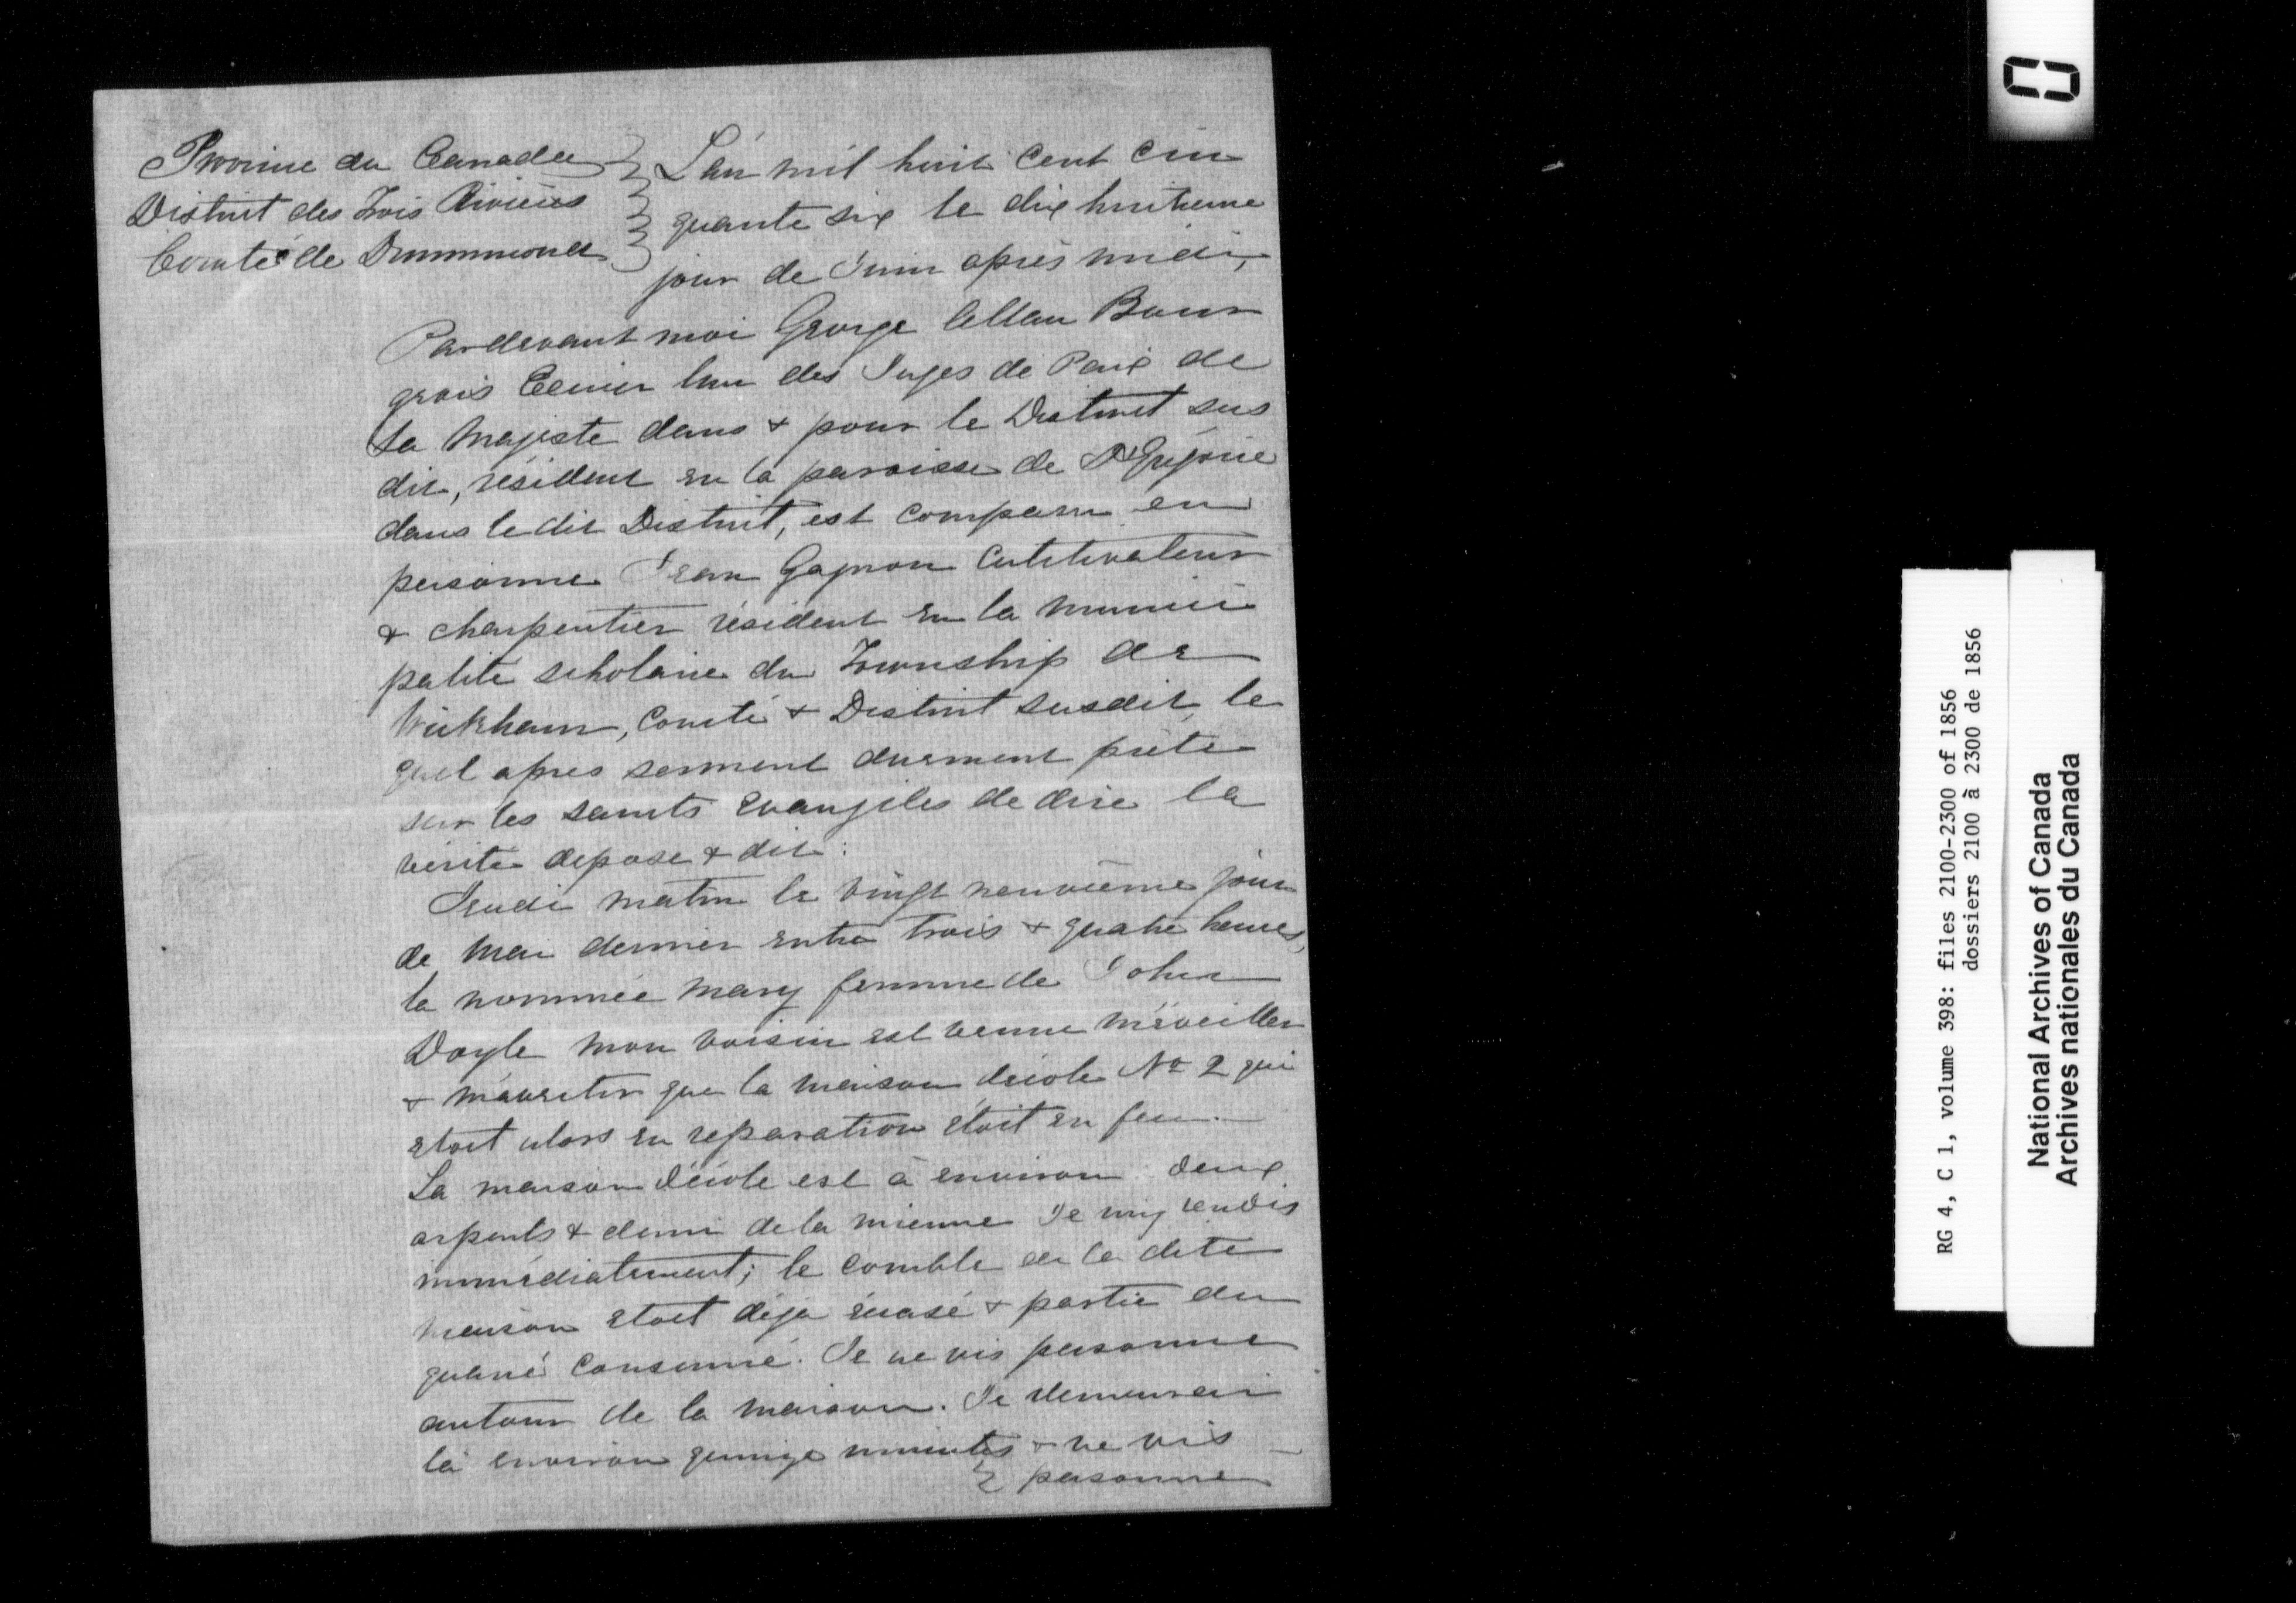 Province du Canada
District des Trois Rivières
Comté de Drummond
L'an mil huit cent cin
quante six le dix huitième
jour de Juin après midi,
Pardevant moi George Bour
geois Ecuier l'un des Juges de Paix de
Sa Majesté dans & pour le District sus
dit, résident en la paroisse de St Grégoire
dans le dit District, est comparu en
personne Jean Gagnon Cultivateur
& charpentier résident en la munici
palité scholaire du Township de
Wickham, Comté & District susdit, le
quel après serment duement prêté
sur les saints Evangiles de dire la
vérité dépose & dit:
Jeudi matin le vingt neuvième jour
de Mai dernier entre trois & quatre heures,
la nommée Mary femme de John
Doyle mon voisin est venue m'éveiller
& m'avertir que la maison d'école No 2 qui
étoit alors en reparation étoit en feu.
La maison d'école est à environ deux
arpents & demi de la mienne Je m'y rendis
immédiatement; le comble de la dite
maison étoit déja écrasé & partie du
quarré consumé. Je ne vis personne
autour de la maison. Je demeurai
là environ quinze minutes & ne vis
personne
RG 4, C 1, volume 398: files 2100-2300 of 1856
dossiers 2100 à 2300 de 1856
National Archives of Canada
Archives nationales du Canada